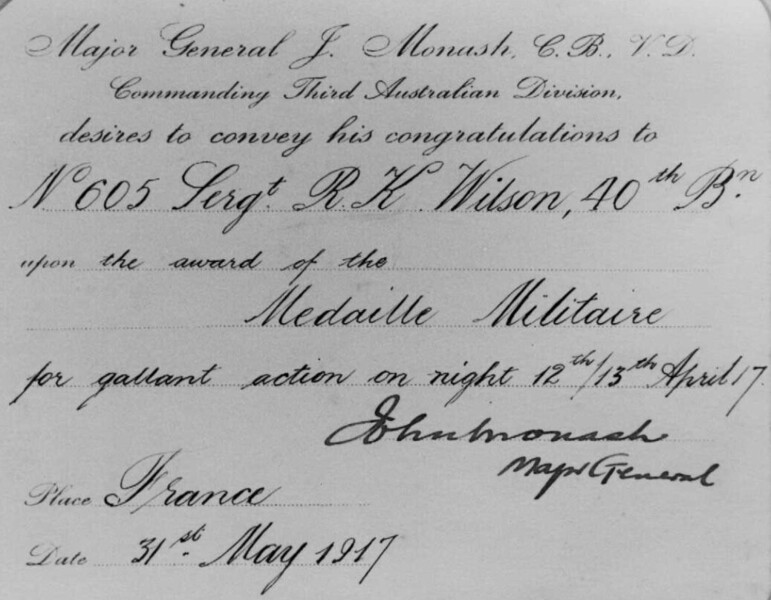 Major General J. Monash, C.B., V.D.
Commanding Third Australian Division,
desires to convey his congratulations to
No 605 Sergt. R. K. Wilson, 40th Bn.
upon the award of the
Medaille Militaire
for gallant action on night 12th/13th April 17.
John Monash
Major General
Place France
Date 31st. May 1917